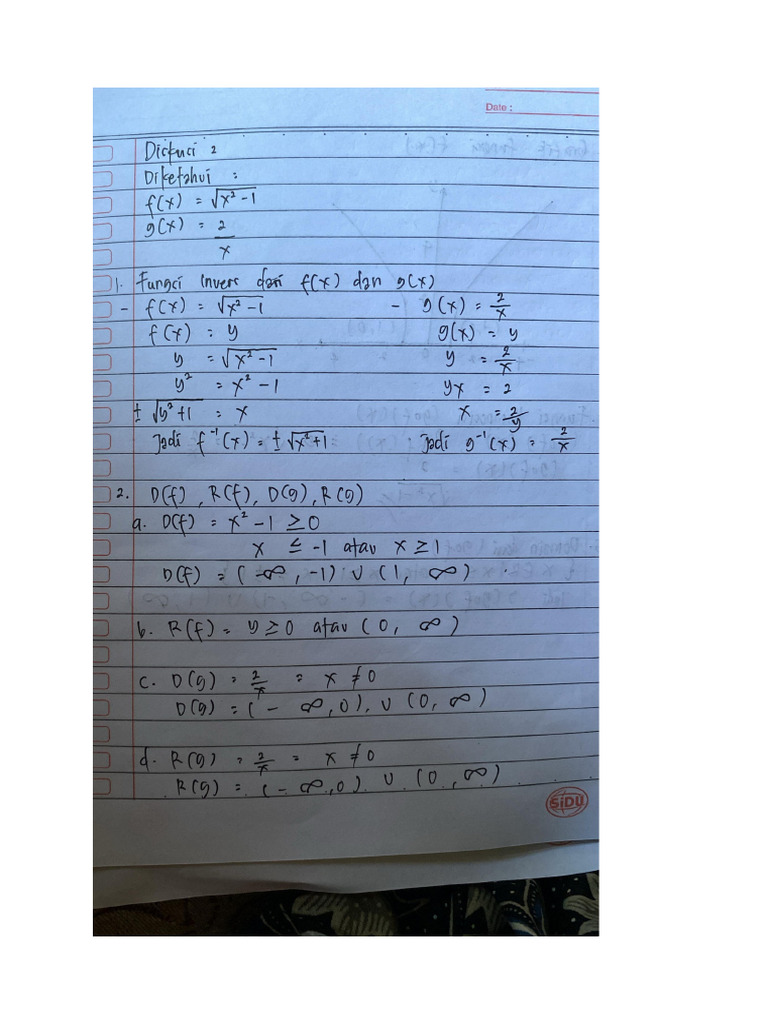 Date :
Diskusi 2
Diketahui :
f(x) = √x² - 1
g(x) = 2/x
1. Fungsi invers dari f(x) dan g(x)
- f(x) = √x² - 1 - g(x) = 2/x
f(x) = y g(x) = y
y = √x² - 1 y = 2/x
y² = x² - 1 yx = 2
± √y² + 1 = x x = 2/y
Jadi f⁻¹(x) = ± √x² + 1 Jadi g⁻¹(x) = 2/x
2. D(f), R(f), D(g), R(g)
a. D(f) = x² - 1 ≥ 0
x ≤ -1 atau x ≥ 1
D(f) = (-∞, -1) ∪ (1, ∞)
b. R(f) = y ≥ 0 atau (0, ∞)
c. D(g) = 2/x = x ≠ 0
D(g) = (- ∞, 0), ∪ (0, ∞)
d. R(g) = 2/x = x ≠ 0
R(g) = (- ∞, 0) ∪ (0, ∞)
SIDU